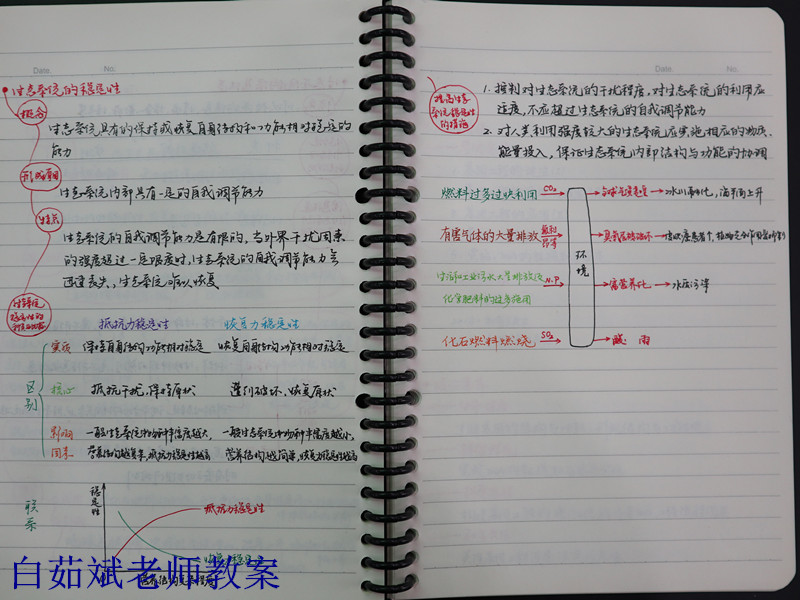 Date. No.
生态系统的稳定性
概念
生态系统具有的保持或恢复自身结构和功能相对稳定的
能力
形成原因
生态系统内部具有一定的自我调节能力
特点
生态系统的自我调节能力是有限的，当外界干扰因素
的强度超过一定限度时，生态系统的自我调节能力会
迅速丧失，生态系统难以恢复
生态系统
稳定性的
抵抗力稳定性 恢复力稳定性
区别
实质 保持自身结构功能相对稳定 恢复自身结构功能相对稳定
核心 抵抗干扰，保持原状 遭到破坏，恢复原状
影响 一般生态系统中物种丰富度越大， 一般生态系统中物种丰富度越小，
因素 营养结构越复杂，抵抗力稳定性越高 营养结构越简单，恢复力稳定性越高
联系
稳定性
抵抗力稳定性
恢复力稳定性
白茹斌老师教案
Date. No.
提高生态
系统稳定性
的措施
1. 控制对生态系统的干扰程度，对生态系统的利用应
适度，不应超过生态系统的自我调节能力
2. 对人类利用强度较大的生态系统应实施相应的物质、
能量投入，保证生态系统内部结构与功能的协调
燃料过多过快利用 CO₂ 全球气候变暖 冰川融化，海平面上升
有害气体的大量排放 氟利昂等 臭氧层破坏
环境
生活和工业污水大量排放及 N.P 富营养化 水质污染
化学肥料的过多施用
化石燃料燃烧 SO₂ 酸雨